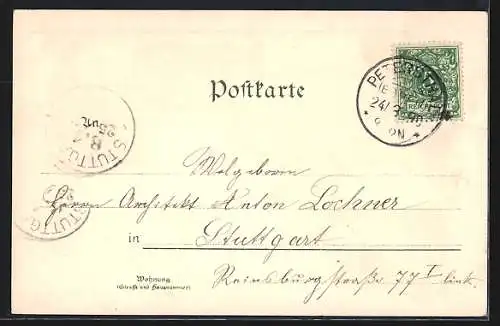 Postkarte
PETERSTH
24/3 99
8-9N
An
STUTTGA
Wolgeboren
Herrn Architekt Anton Lochner
STUTTG
in Stuttgart
Wohnung
(Straße und Hausnummer)
Reinsburgstraße 77 I link.